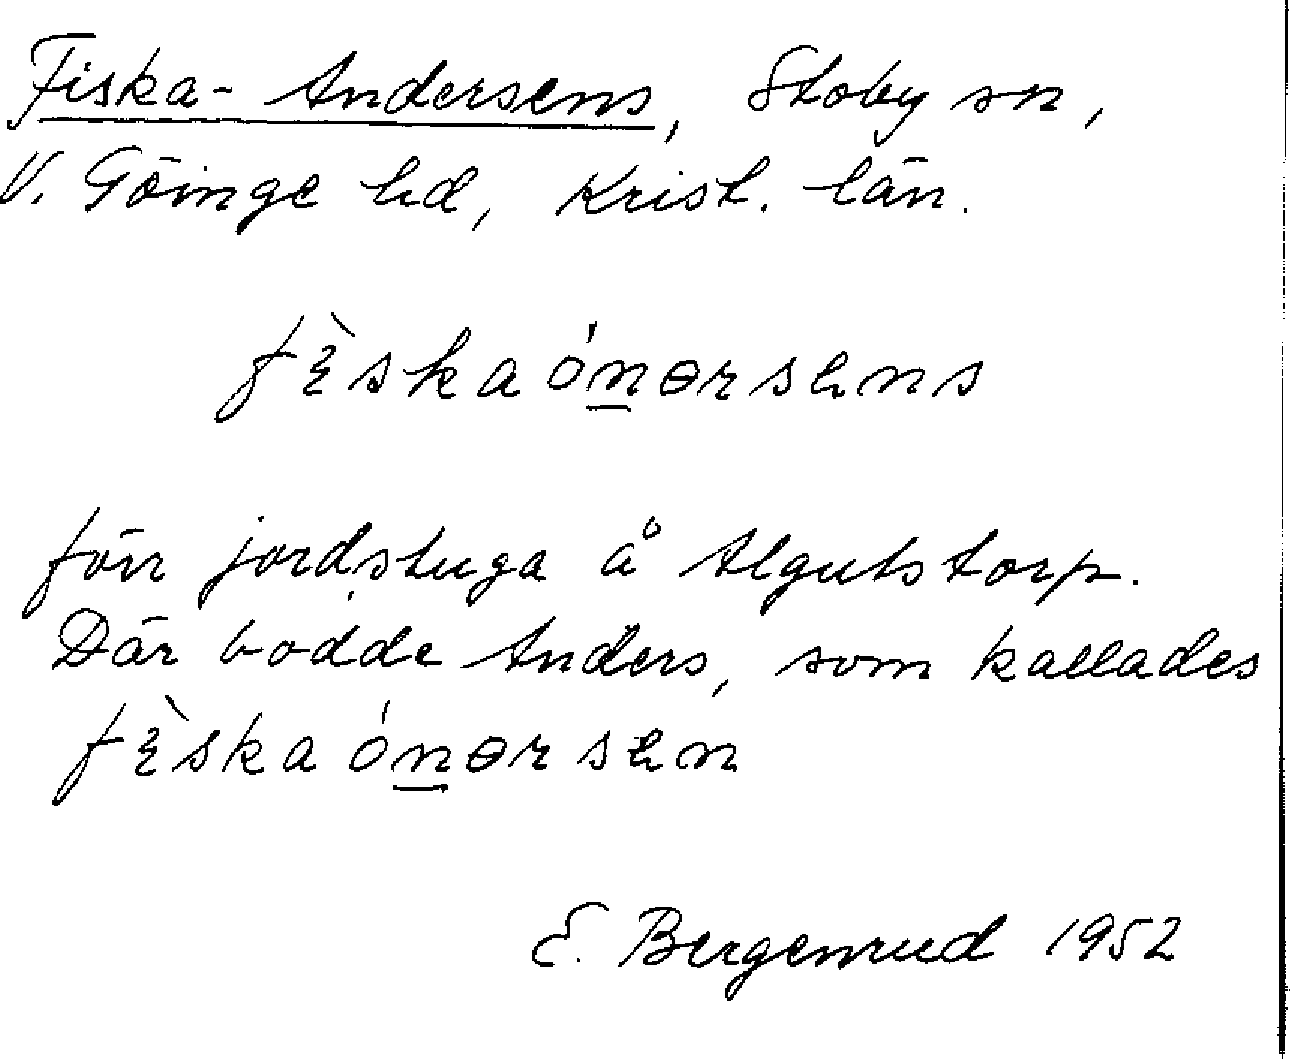 Fiska-Andersens, Stoby sn,
V. Göinge hd, Krist. län.
fèskaónərsens
förr jordstuga å Algutstorp.
Där bodde Anders, som kallades
fèskaónərsen
E. Bergenrud 1952